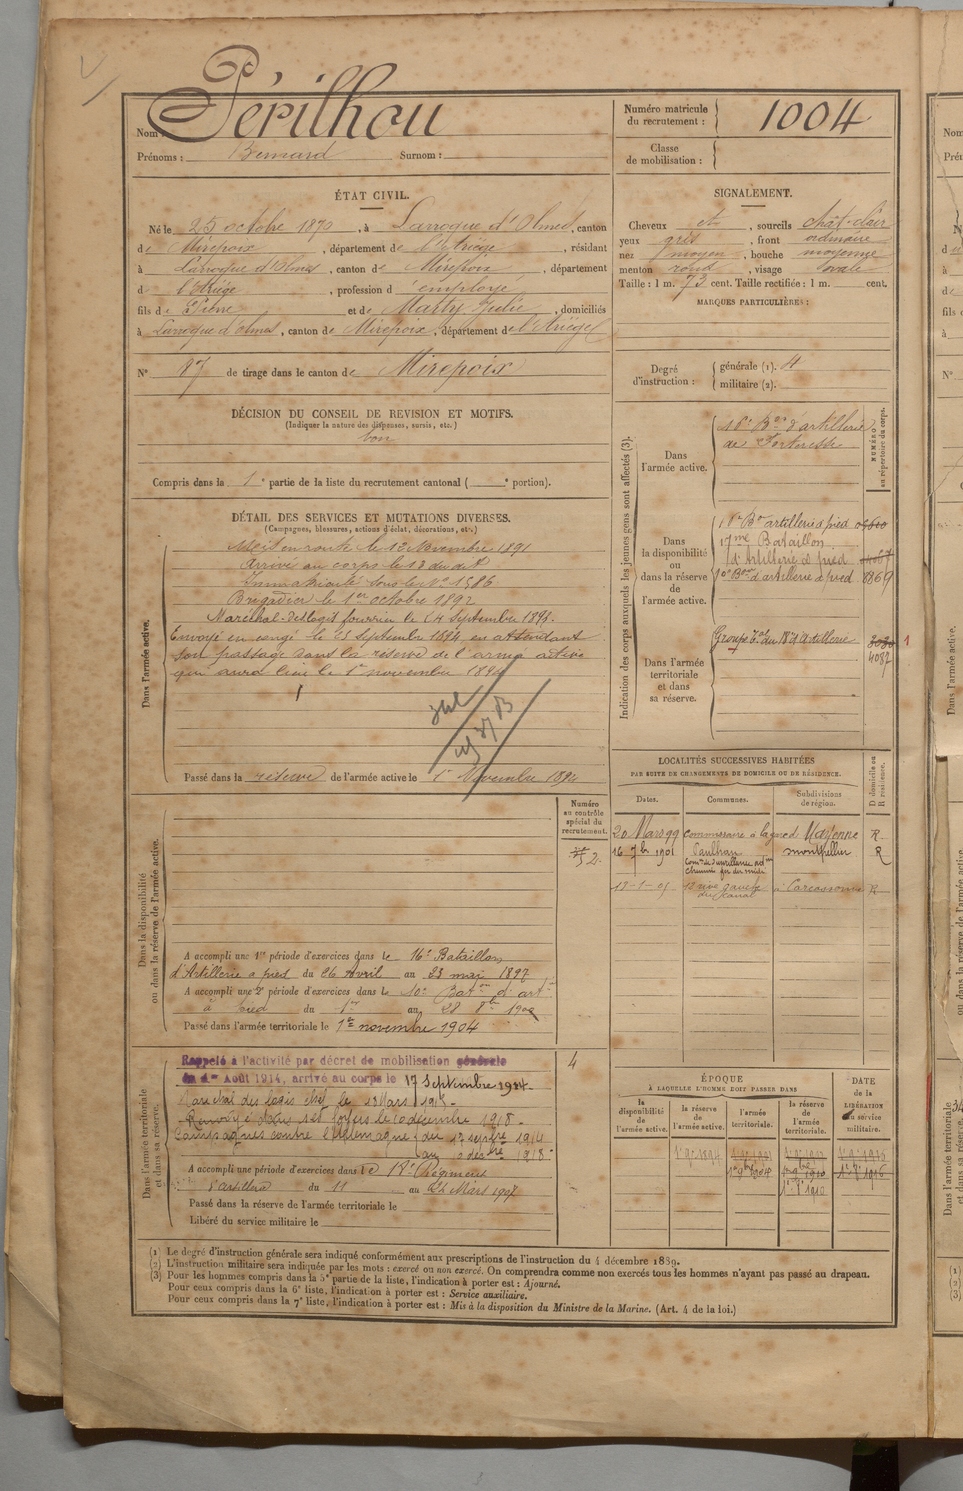 Nom : Périlhou
Prénoms : Bernard Surnom :
Numéro matricule du recrutement : 1004
Classe de mobilisation :
ÉTAT CIVIL.
Né le 25 octobre 1870, à Larroque d'Olmes, canton
de Mirepoix, département de l'Ariège, résidant
à Larroque d'Olmes, canton de Mirepoix, département
d l'Ariège, profession d'employé
fils de Pierre et de Marty Julie, domiciliés
à Larroque d'Olmes, canton de Mirepoix, département de l'Ariège
N° 87 de tirage dans le canton de Mirepoix
SIGNALEMENT.
Cheveux et, sourcils chât-clair
yeux gris, front ordinaire
nez moyen, bouche moyenne
menton rond, visage ovale
Taille : 1 m. 73 cent. Taille rectifiée : 1 m. cent.
MARQUES PARTICULIÈRES :
Degré d'instruction : générale (1). 4
militaire (2).
DÉCISION DU CONSEIL DE REVISION ET MOTIFS.
(Indiquer la nature des dispenses, sursis, etc.)
bon
Compris dans la 1e partie de la liste du recrutement cantonal ( e portion).
DÉTAIL DES SERVICES ET MUTATIONS DIVERSES.
(Campagnes, blessures, actions d'éclat, décorations, etc.)
Dans l'armée active.
Mis en route le 12 Novembre 1891
Arrivé au corps le 13 du dit
Immatriculé sous le N° 1586
Brigadier le 1er octobre 1892
Maréchal-des logis fourrier le 14 septembre 1893.
Envoyé en congé le 25 Septembre 1894 en attendant
son passage dans la réserve de l'armée active
qui aura lieu le 1er novembre 1894
Passé dans la réserve de l'armée active le 1er Novembre 1894
Indication des corps auxquels les jeunes gens sont affectés (3).
NUMÉRO au répertoire du corps.
Dans l'armée active.
16e Bon d'artillerie
de Forteresse
Dans la disponibilité ou dans la réserve de l'armée active.
16e Bon artillerie à pied
17me Bataillon
d'Artillerie à pied
10e Bon d'artillerie à pied 8869
Dans l'armée territoriale et dans sa réserve.
Groupe Tal du 18e d'Artillerie
4082
1
LOCALITÉS SUCCESSIVES HABITÉES
PAR SUITE DE CHANGEMENTS DE DOMICILE OU DE RÉSIDENCE.
Dates. Communes. Subdivisions de région. D domicile ou R résidence.
20 Mars 99 Commissaire à la gare de Mayenne R
16 7bre 1901 Paulhan montpellier R
chemin fer du midi
12 rive gauche du Canal à Carcassonne R
Dans la disponibilité ou dans la réserve de l'armée active.
Numéro au contrôle spécial du recrutement.
52.
A accompli une 1re période d'exercices dans le 16e Bataillon
d'Artillerie à pied du 26 Avril au 23 mai 1897
A accompli une 2e période d'exercices dans le 10e Baton d'art
à pied du 1er au 28 8bre 1900
Passé dans l'armée territoriale le 1er novembre 1904
Dans l'armée territoriale et dans sa réserve.
4
Rappelé à l'activité par décret de mobilisation générale
du 1er Août 1914, arrivé au corps le 17 Septembre 1914
Maréchal des logis chef le 13 Mars 1915.
Renvoyé dans ses foyers le 10 décembre 1918.
Campagnes contre l'Allemagne du 17 septbre 1914
A accompli une période d'exercices dans le 18e Régiment
d'artillerie du 11 au 24 Mars 1907
Passé dans la réserve de l'armée territoriale le
Libéré du service militaire le
ÉPOQUE
À LAQUELLE L'HOMME DOIT PASSER DANS
DATE DE LA LIBÉRATION du service militaire.
la disponibilité de l'armée active. la réserve de l'armée active. l'armée territoriale. la réserve de l'armée territoriale.
(1) Le degré d'instruction générale sera indiqué conformément aux prescriptions de l'instruction du 4 décembre 1889.
(2) L'instruction militaire sera indiquée par les mots : exercé ou non exercé. On comprendra comme non exercés tous les hommes n'ayant pas passé au drapeau.
(3) Pour les hommes compris dans la 5e partie de la liste, l'indication à porter est : Ajourné.
Pour ceux compris dans la 6e liste, l'indication à porter est : Service auxiliaire.
Pour ceux compris dans la 7e liste, l'indication à porter est : Mis à la disposition du Ministre de la Marine. (Art. 4 de la loi.)